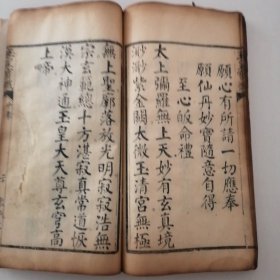 願心有所請一切應奉
願仙丹妙寶隨意自得
至心皈命禮
太上彌羅無上天妙有玄真境
渺渺紫金闕太微玉清宮無極
無上聖廓落放光明寂寂浩無
宗玄範總十方湛寂真常道恢
漠大神通玉皇大天尊玄穹高
上帝